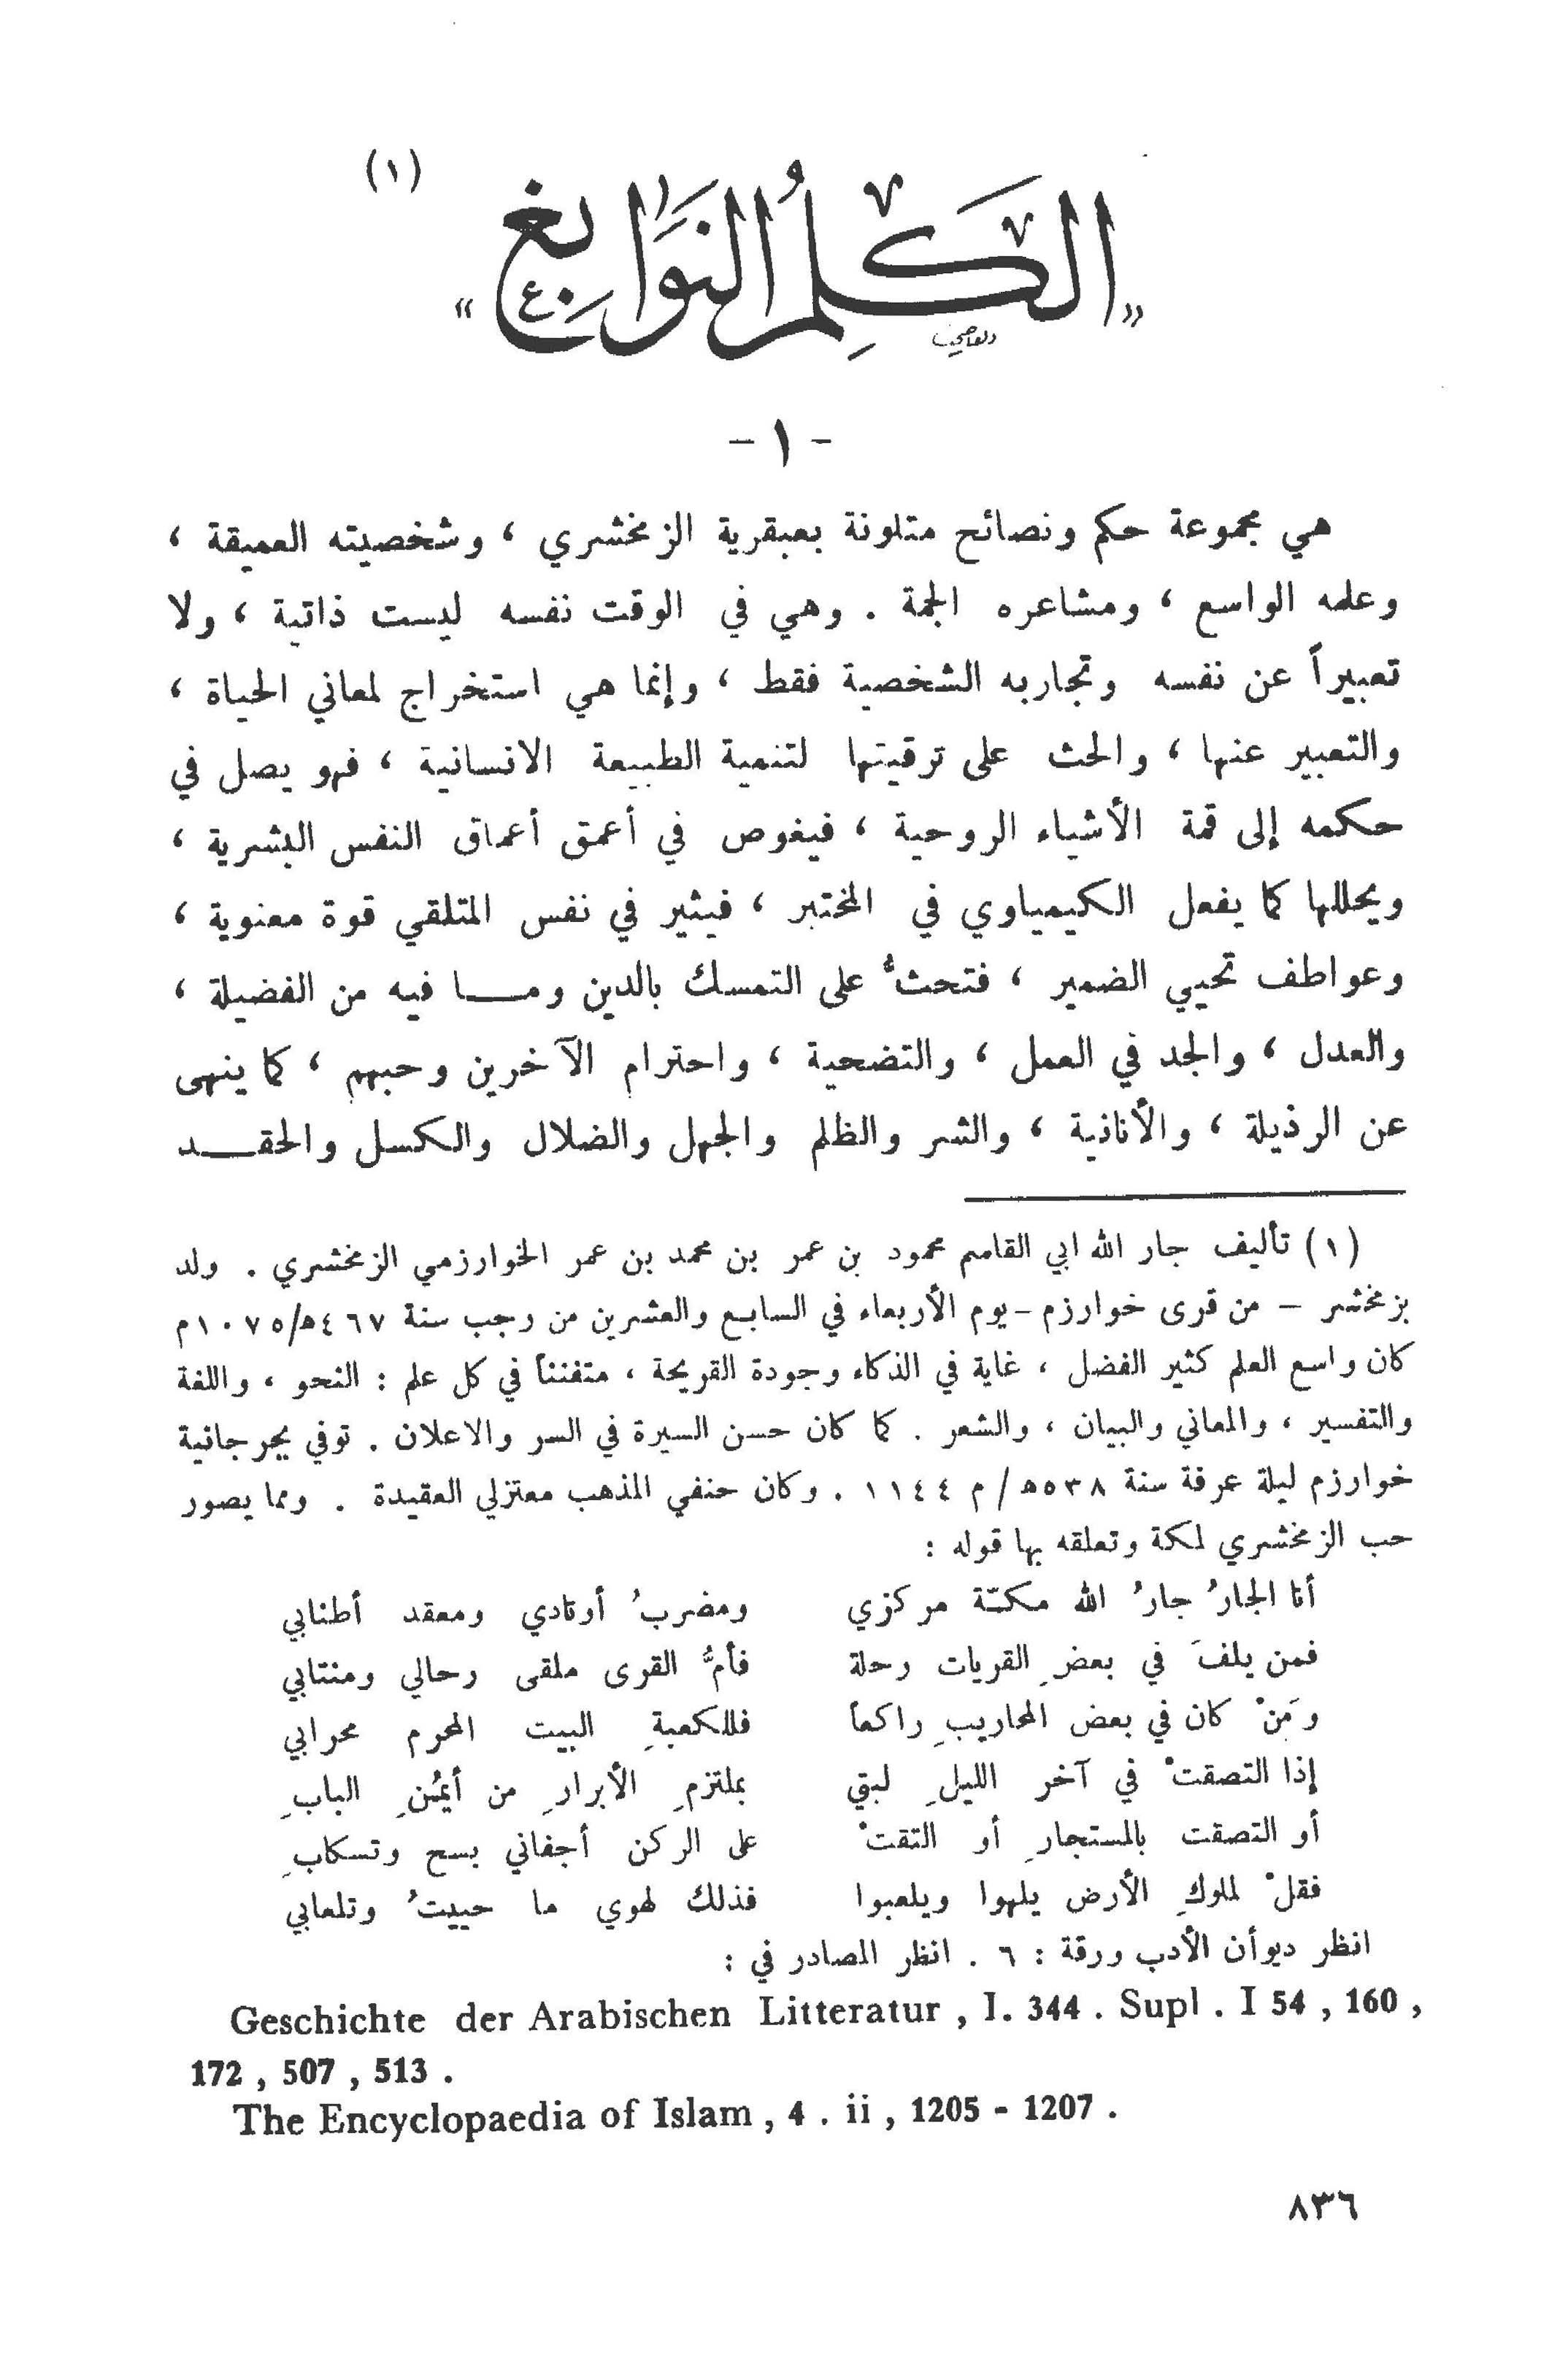 (١)
« الكَلِمُ النَوَابغ »
- ١ -
هي مجموعة حكم ونصائح متلونة بعبقرية الزمخشري ، وشخصيته العميقة ،
وعلمه الواسع ، ومشاعره الجمة . وهي في الوقت نفسه ليست ذاتية ، ولا
تعبيراً عن نفسه وتجاربه الشخصية فقط ، وإنما هي استخراج لمعاني الحياة ،
والتعبير عنها ، والحث على ترقيتها لتنمية الطبيعة الانسانية ، فهو يصل في
حكمه إلى قمة الأشياء الروحية ، فيغوص في أعمق أعماق النفس البشرية ،
ويحللها كما يفعل الكيمياوي في المختبر ، فيثير في نفس المتلقي قوة معنوية ،
وعواطف تحيي الضمير ، فتحثُّ على التمسك بالدين ومــا فيه من الفضيلة ،
والعدل ، والجد في العمل ، والتضحية ، واحترام الآخرين وحبهم ، كما ينهى
عن الرذيلة ، والأنانية ، والشر والظلم والجهل والضلال والكسل والحقــد
(١) تأليف جار الله ابي القاسم محمود بن عمر بن محمد بن عمر الخوارزمي الزمخشري . ولد
بزمخشر – من قرى خوارزم – يوم الأربعاء في السابع والعشرين من رجب سنة ٤٦٧ه/١٠٧٥م
كان واسع العلم كثير الفضل ، غاية في الذكاء وجودة القريحة ، متفنناً في كل علم : النحو ، واللغة
والتفسير ، والمعاني والبيان ، والشعر . كما كان حسن السيرة في السر والاعلان . توفي بجرجانية
خوارزم ليلة عرفة سنة ٥٣٨ه / م ١١٤٤ . وكان حنفي المذهب معتزلي العقيدة . ومما يصور
حب الزمخشري لمكة وتعلقه بها قوله :
أنا الجارُ جارُ الله مكـّة مركزي ومضربُ أوتادي ومعقد أطنابي
فمن يلفَ في بعضِ القريات رحلة فأمُّ القرى ملقى رحالي ومنتابي
ومَنْ كان في بعض المحاريبِ راكعاً فللكعبةِ البيت المحرم محرابي
إذا التصقتْ في آخر الليلِ لبتي بملتزمِ الأبرارِ من أيمُنِ البابِ
أو التصقت بالمستجارِ أو التقتْ على الركن أجفاني بسح وتسكابِ
فقلْ لملوكِ الأرض يلهوا ويلعبوا فذلك لهوي ما حييتُ وتلعابي
انظر ديوأن الأدب ورقة : ٦ . انظر المصادر في :
Geschichte der Arabischen Litteratur , I. 344 . Supl . I 54 , 160 ,
172 , 507 , 513 .
The Encyclopaedia of Islam , 4 . ii , 1205 - 1207 .
٨٣٦